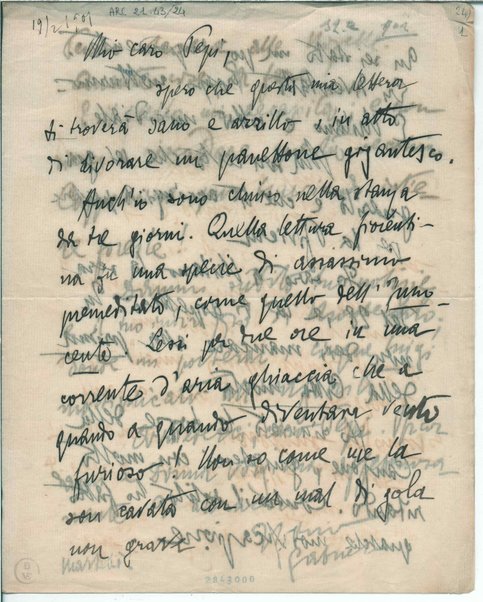 19/2 1901
ARC 21.43/24
241
1
Mio caro Pepi,
spero che questa mia lettera
ti troverà sano e arzillo e in atto
di divorare un panettone gigantesco.
Anch'io sono chiuso nella stanza
da tre giorni. Quella lettura fiorenti-
na fu una specie di assassinio
premeditato, come quello dell'Inno-
cente. Lessi per due ore in una
corrente d'aria ghiaccia che a
quando a quando diventava vento
furioso. Non so come me la
son cavata con un mal di gola
non grave
2843000